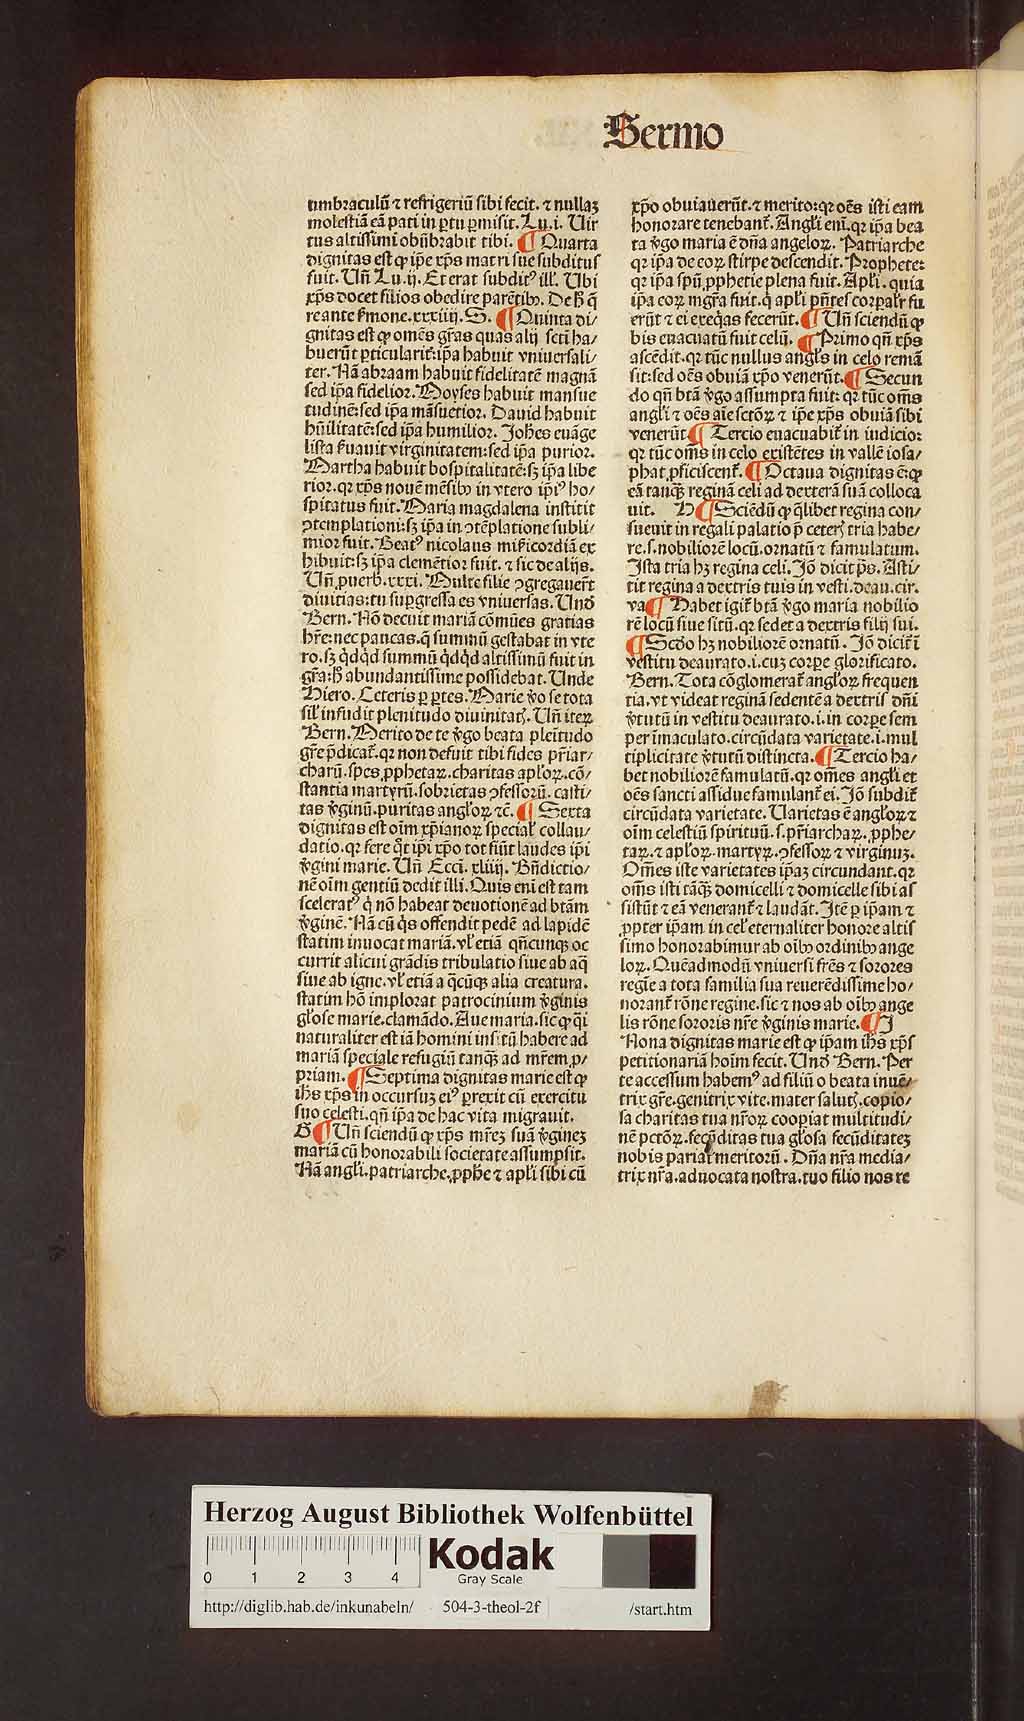 Sermo
umbraculū ⁊ refrigeriū sibi fecit. ⁊ nullaꝫ
molestiā eā pati in ꝑtu ꝑmisit. Lu. i. Uir
tus altissimi obūbrabit tibi. ¶ Quarta
dignitas est ꝙ ip̄e xp̄s matri sue subditus
fuit. Uñ Lu. ij. Et erat subditꝰ ill̓. Ubi
xp̄s docet filios obedire parētibꝰ. De hͦ q̄
re ante ẜmone. xxxiiij. S. ¶ Quinta di/
gnitas est ꝙ omēs gr̄as quas alij scti ha/
buerūt ꝑticularit̓: ip̄a habuit vniuersali/
ter. Nā abraam habuit fidelitatē magnā
sed ip̄a fidelior. Moyses habuit mansue
tudinē: sed ip̄a māsuetior. Dauid habuit
hūilitatē: sed ip̄a humilior. Joh̄es euāge
lista ẜuauit virginitatem: sed ip̄a purior.
Martha habuit hospitalitatē: sꝫ ip̄a libe
rior. qꝛ xp̄s nouē mēsibꝰ in vtero ip̄iꝰ ho/
spitatus fuit. Maria magdalena institit
ꝯtemplationi: sꝫ ip̄a in ꝯtēplatione subli/
mior fuit. Beatꝰ nicolaus mīcordiā ex
hibuit: sꝫ ip̄a clemētior fuit. ⁊ sic de alijs.
Uñ ꝓuerb. xxxi. Multe filie ꝯgregauer̄t
diuitias: tu supgressa es vniuersas. Unđ
Bern. Nō decuit mariā cōmūes gratias
hr̄e: nec paucas. q̄ summū gestabat in vte
ro. sꝫ q̇dq̇d summū q̇dq̇d altissimū fuit in
gr̄a: hͦ abundantissime possidebat. Unde
Hiero. Ceteris ꝑ ꝑtes. Marie v̓o se tota
sil̓ infudit plenitudo diuinitatꝭ. Uñ iteꝝ
Bern. Merito de te v̓go beata pleītudo
gr̄e p̄dicat̄. qꝛ non defuit tibi fides pr̄iar/
charū. spes ꝓphetaꝝ. charitas apl̓oꝝ. cō/
stantia martyrū. sobrietas ꝯfessorū. casti/
tas v̓ginū. puritas angl̓oꝝ ⁊c̄. ¶ Sexta
dignitas est oīm xp̄ianoꝝ special̓ collau/
datio. qꝛ fere q̄t ip̄i xp̄o tot fiūt laudes ip̄i
v̓gini marie. Uñ Ecci. xliiij. Bñdictio/
nē oīm gentiū dedit illi. Quis enī est tam
sceleratꝰ q̇ nō habeat deuotionē ad btām
v̓ginē. Nā cū q̇s offendit pedē ad lapidē
statim inuocat mariā. vl̓ etiā qn̄cunqꝫ oc
currit alicui grādis tribulatio siue ab aq̄
siue ab igne. vl̓ etiā a q̄cūqꝫ alia creatura.
statim hō implorat patrocinium v̓ginis
gl̓ose marie. clamādo. Aue maria. sic ꝙ q̄i
naturaliter est iā homini insitū habere ad
mariā speciale refugiū tanqꝫ ad mr̄em ꝓ/
priam. ¶ Septima dignitas marie est ꝙ
ih̄s xp̄s in occursuꝫ eiꝰ ꝑrexit cū exercitu
suo celesti. qn̄ ip̄a de hac vita migrauit.
G ¶ Uñ sciendū ꝙ xp̄s mr̄eꝫ suā v̓gineꝫ
mariā cū honorabili societate assumpsit.
Nā angl̓i. patriarche. ꝓph̄e ⁊ apl̓i sibi cū
xp̄o obuiauerūt. ⁊ merito: qꝛ oēs isti eam
honorare tenebant̄. Angl̓i enī. qꝛ ip̄a bea
ta v̓go maria ē dn̄a angeloꝝ. Patriarche
qꝛ ip̄a de eoꝝ stirpe descendit. Prophete:
qꝛ ip̄a spū ꝓphetie plena fuit. Apl̓i. quia
ip̄a eoꝝ mgr̄a fuit. q̇ apl̓i pn̄tes corpal̓r fu
erūt ⁊ ei exeq̄as fecerūt. ¶ Uñ sciendū ꝙ
bis euacuatū fuit celū. ¶ Primo qn̄ xp̄s
ascēdit. qꝛ tūc nullus angl̓s in celo remā
sit: sed oēs obuiā xp̄o venerūt. ¶ Secun
do qn̄ btā v̓go assumpta fuit: qꝛ tūc om̄s
angl̓i ⁊ oēs aīe sctōꝝ ⁊ ip̄e xp̄s obuiā sibi
venerūt ¶ Tercio euacuabit̄ in iudicio:
qꝛ tūc om̄s in celo existētes in vallē iosa/
phat ꝓficiscent̄. ¶ Octaua dignitas ē: ꝙ
eā tanqꝫ reginā celi ad dexterā suā colloca
uit. H ¶ Sciēdū ꝙ q̄libet regina con/
sueuit in regali palatio p̄ ceterꝭ tria habe/
re. s. nobiliorē locū. ornatū ⁊ famulatum.
Ista tria hꝫ regina celi. Jō dicit ps̄. Asti/
tit regina a dextris tuis in vesti. deau. cir.
va ¶ Habet igit̄ btā v̓go maria nobilio
rē locū siue sitū. qꝛ sedet a dextris filij sui.
¶ Scdo hꝫ nobiliorē ornatū. Jō dicit̄ ī
vestitu deaurato. i. cuꝫ corpe glorificato.
Bern. Tota cōglomerat̄ angl̓oꝝ frequen
tia. vt videat reginā sedentē a dextris dn̄i
v̓tutū in vestitu deaurato. i. in corpe sem
per īmaculato. circūdata varietate. i. mul
tiplicitate v̓tutū distincta. ¶ Tercio ha/
bet nobiliorē famulatū. qꝛ om̄es angl̓i et
oēs sancti assidue famulant̄ ei. Jō subdit̄
circūdata varietate. Uarietas ē angl̓oꝝ ⁊
oīm celestiū spirituū. s. pr̄iarchaꝝ. ꝓphe/
taꝝ. ⁊ apl̓oꝝ. martyꝝ. ꝯfessoꝝ ⁊ virginuꝫ.
Om̄es iste varietates ip̄aꝫ circundant. qꝛ
om̄s isti tāqꝫ domicelli ⁊ domicelle sibi as
sistūt ⁊ eā venerant̄ ⁊ laudāt. Itē ꝑ ip̄am ⁊
ꝓpter ip̄am in cel̓ eternaliter honore altis
simo honorabimur ab oībꝰ ordinibꝰ ange
loꝝ. Quēadmodū vniuersi fr̄es ⁊ sorores
regīe a tota familia sua reuerēdissime ho/
norant̄ rōne regine. sic ⁊ nos ab oībꝰ ange
lis rōne sororis nr̄e v̓ginis marie. ¶ J
Nona dignitas marie est ꝙ ip̄am ih̄s xp̄s
petitionariā hoīm fecit. Unđ Bern. Per
te accessum habemꝰ ad filiū o beata inuē/
trix gr̄e. genitrix vite. mater salutꝭ. copio/
sa charitas tua nr̄oꝝ coopiat multitudi/
nē pctōꝝ. fecūditas tua gl̓osa fecūditateꝫ
nobis pariat meritorū. Dn̄a nr̄a media/
trix nr̄a. aduocata nostra. tuo filio nos re
Herzog August Bibliothek Wolfenbüttel
0 1 2 3 4
Kodak
Gray Scale
http://diglib.hab.de/inkunabeln/ 504-3-theol-2f /start.htm